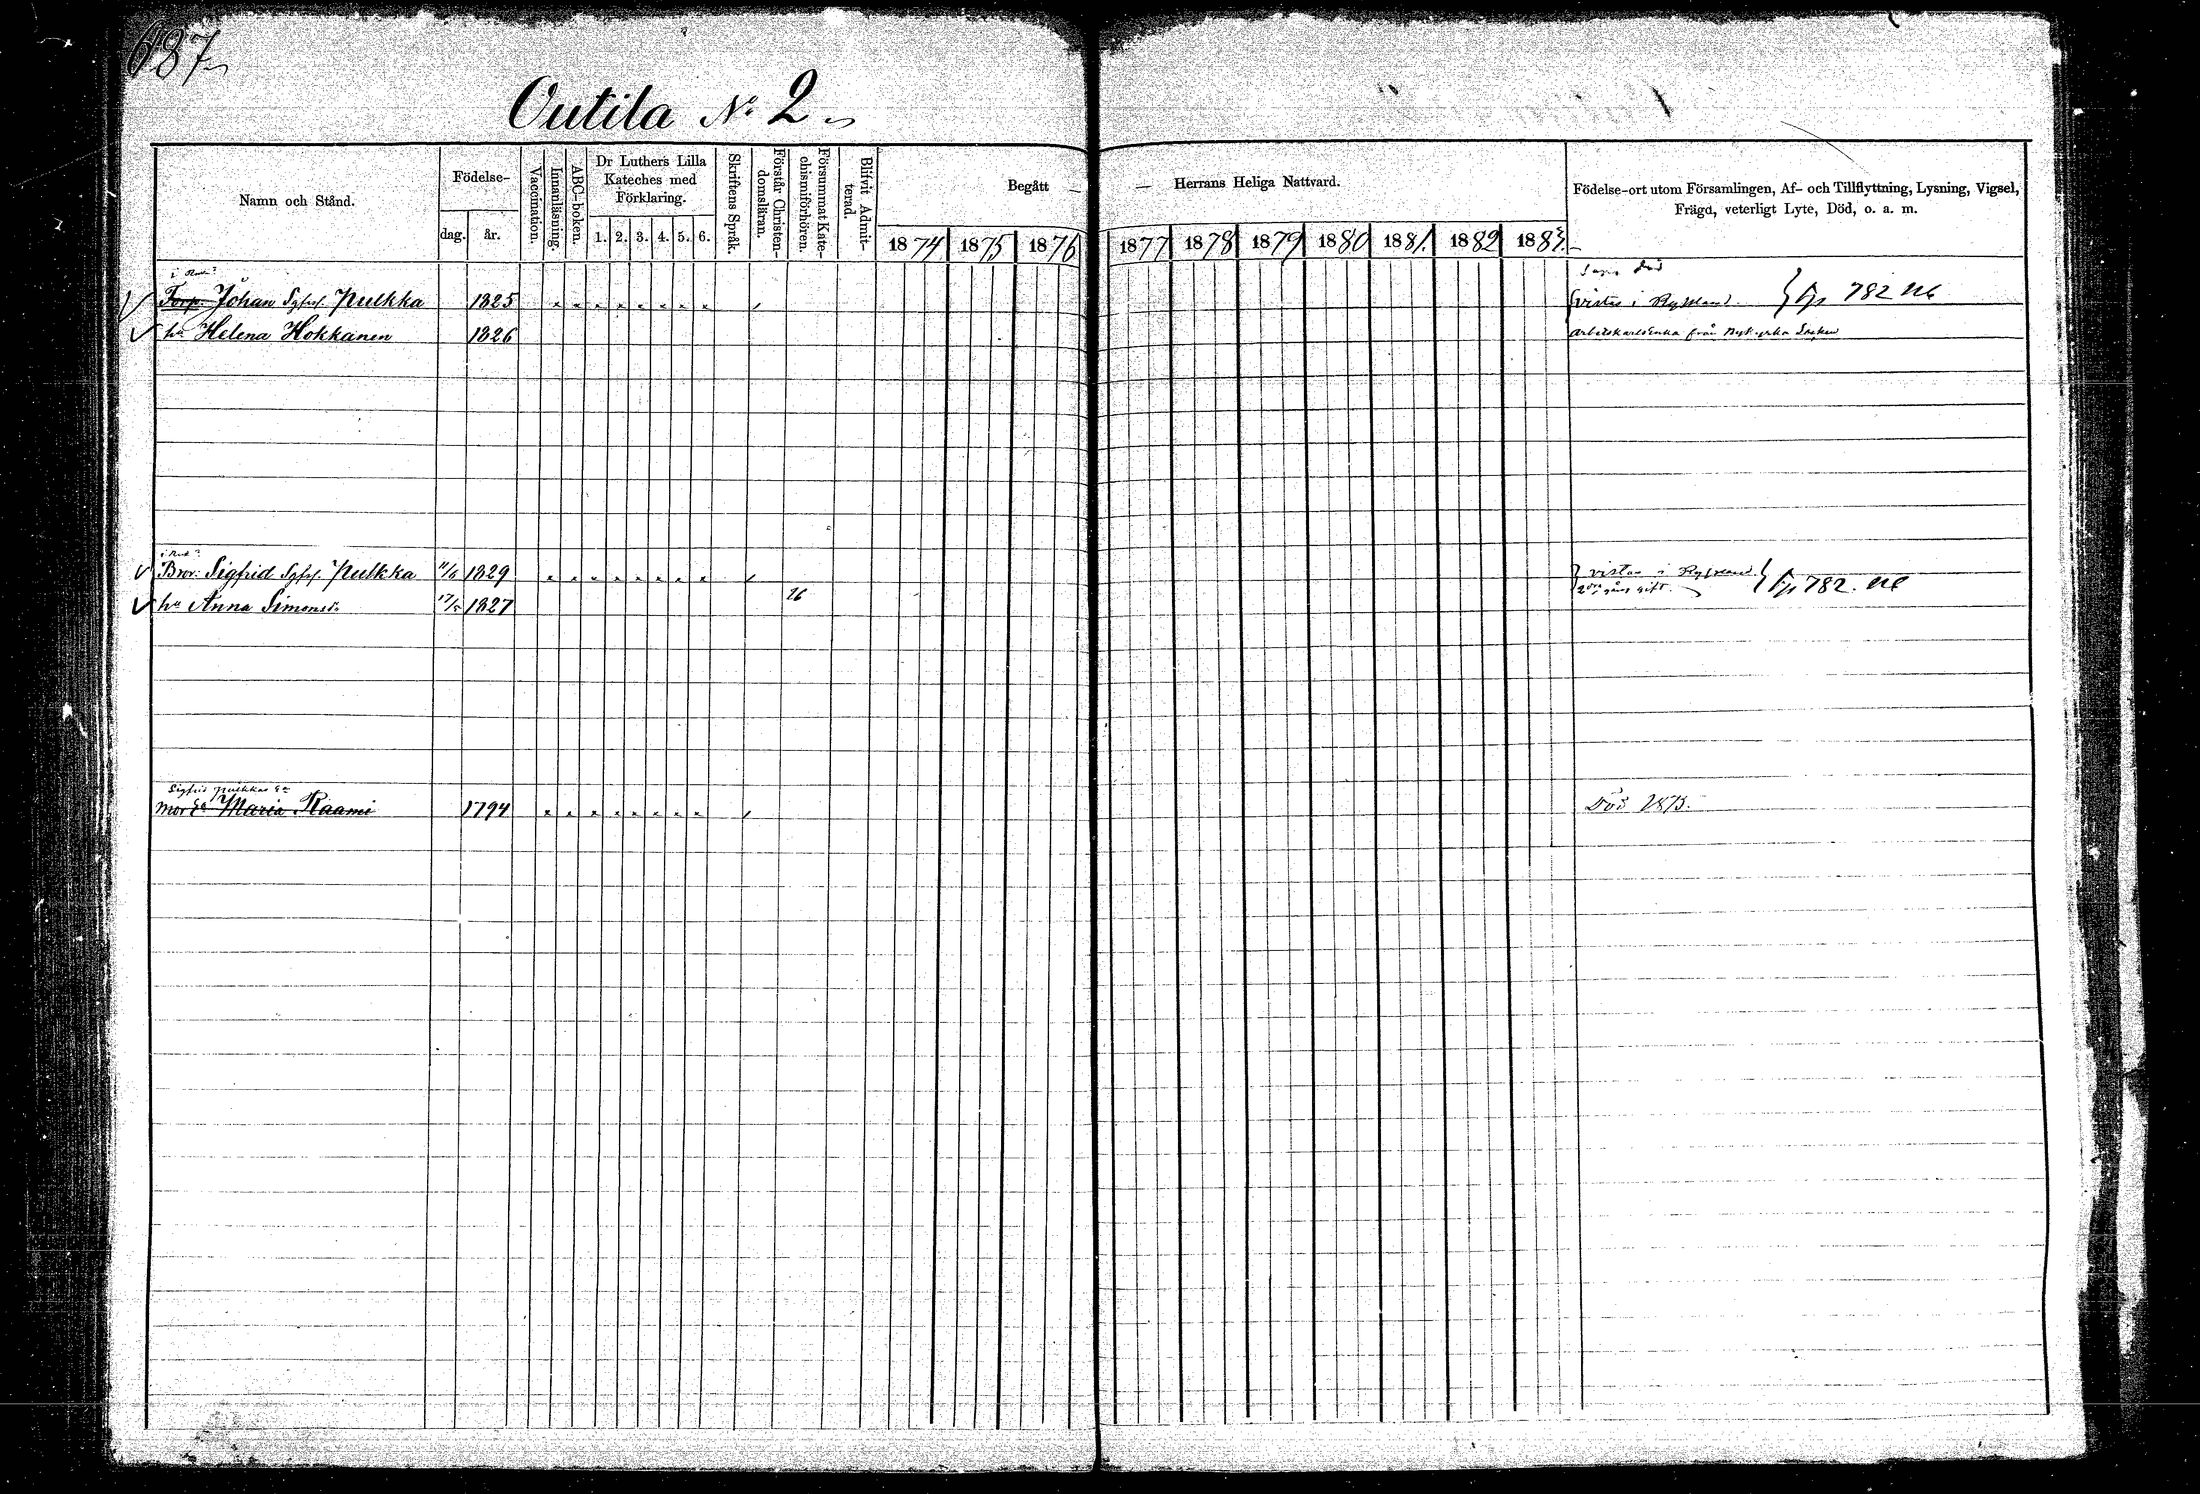 687
Outila No 2
Namn och Stånd.
Födelse-
dag.
år.
Vaccination.
Innanläsning.
ABC-boken.
Dr Luthers Lilla
Kateches med
Förklaring.
1. 2. 3. 4. 5. 6.
Skriftens Språk.
Förstår Christen-
domsläran.
Försummat Kate-
chismiförhören.
Blifvit Admit-
terad.
Begått — — Herrans Heliga Nattvard.
1874 1875 1876 1877 1878 1879 1880 1881. 1882 1883.
Födelse-ort utom Församlingen, Af- och Tillflyttning, Lysning, Vigsel,
Frägd, veterligt Lyte, Död, o. a. m.
Torp. Johan Sgfrs. Pulkka 1825 vistas i Ryssland. 782
hu Helena Hokkanen 1826 Arbetskarlsenka från
Bror: Sigfrid Sgfrs. Pulkka 1829 vistas i Ryssland
gång gift. 782.
hu Anna Simonsdr 17/5 1827 76
Sigfrid Pulkkas Ea
Mor Ea Maria Raami 1794 Död 1873.